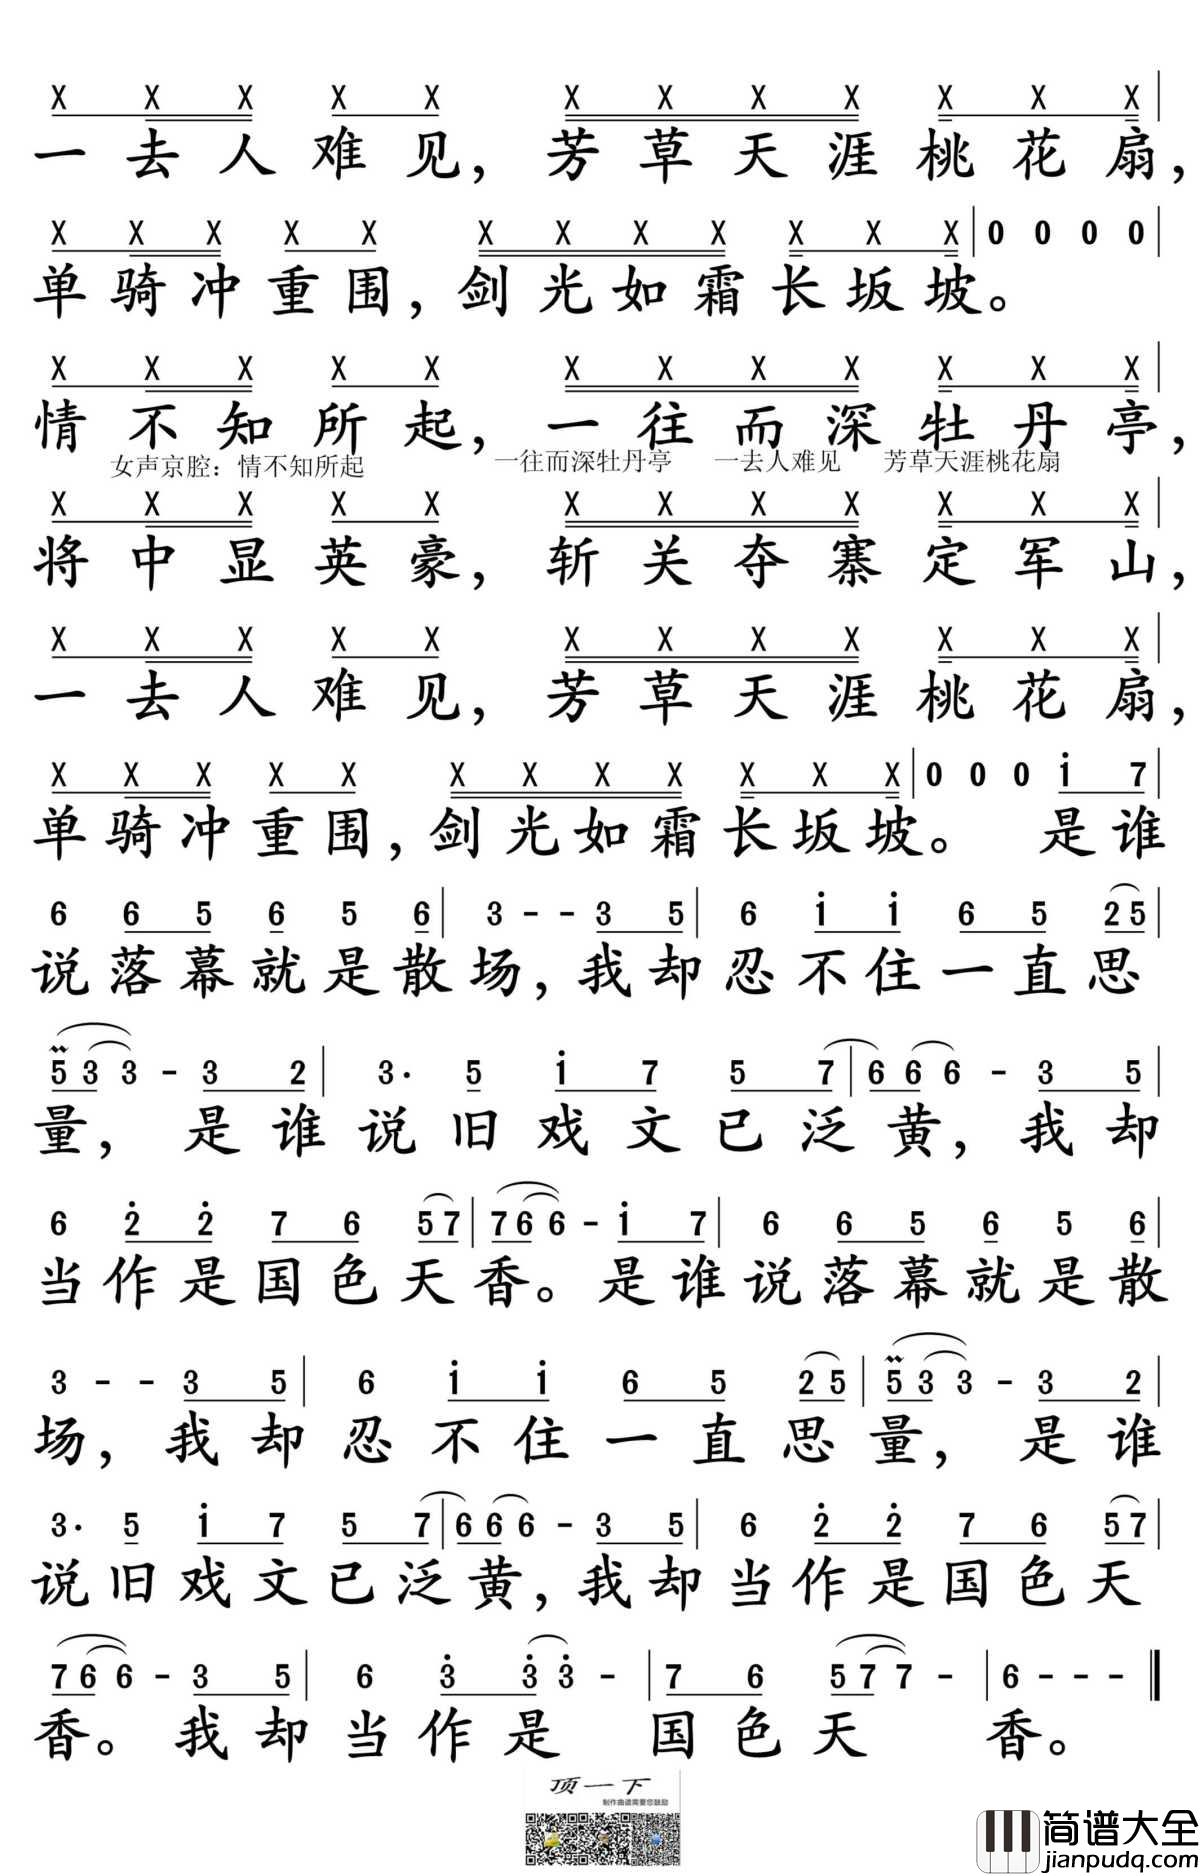 X X X X X X X X X X X X
一去人难见，芳草天涯桃花扇，
X X X X X X X X X X X X 0 0 0 0
单骑冲重围，剑光如霜长坂坡。
X X X X X X X X X X X X
情不知所起，一往而深牡丹亭，
女声京腔：情不知所起 一往而深牡丹亭 一去人难见 芳草天涯桃花扇
X X X X X X X X X X X X
将中显英豪，斩关夺寨定军山，
X X X X X X X X X X X X
一去人难见，芳草天涯桃花扇，
X X X X X X X X X X X X 0 0 0 1 7
单骑冲重围，剑光如霜长坂坡。 是谁
6 6 5 6 5 6 3 - - 3 5 6 1 1 6 5 2 5
说落幕就是散场，我却忍不住一直思
5 3 3 - 3 2 3· 5 1 7 5 7 6 6 6 - 3 5
量，是谁说旧戏文已泛黄，我却
6 2 2 7 6 5 7 7 6 6 - 1 7 6 6 5 6 5 6
当作是国色天香。是谁说落幕就是散
3 - - 3 5 6 1 1 6 5 2 5 5 3 3 - 3 2
场，我却忍不住一直思量，是谁
3· 5 1 7 5 7 6 6 6 - 3 5 6 2 2 7 6 5 7
说旧戏文已泛黄，我却当作是国色天
7 6 6 - 3 5 6 3 3 3 - 7 6 5 7 7 - 6 - - -
香。我却当作是 国色天 香。
顶一下
制作曲谱需要您鼓励
简谱大全
jianpudq.com